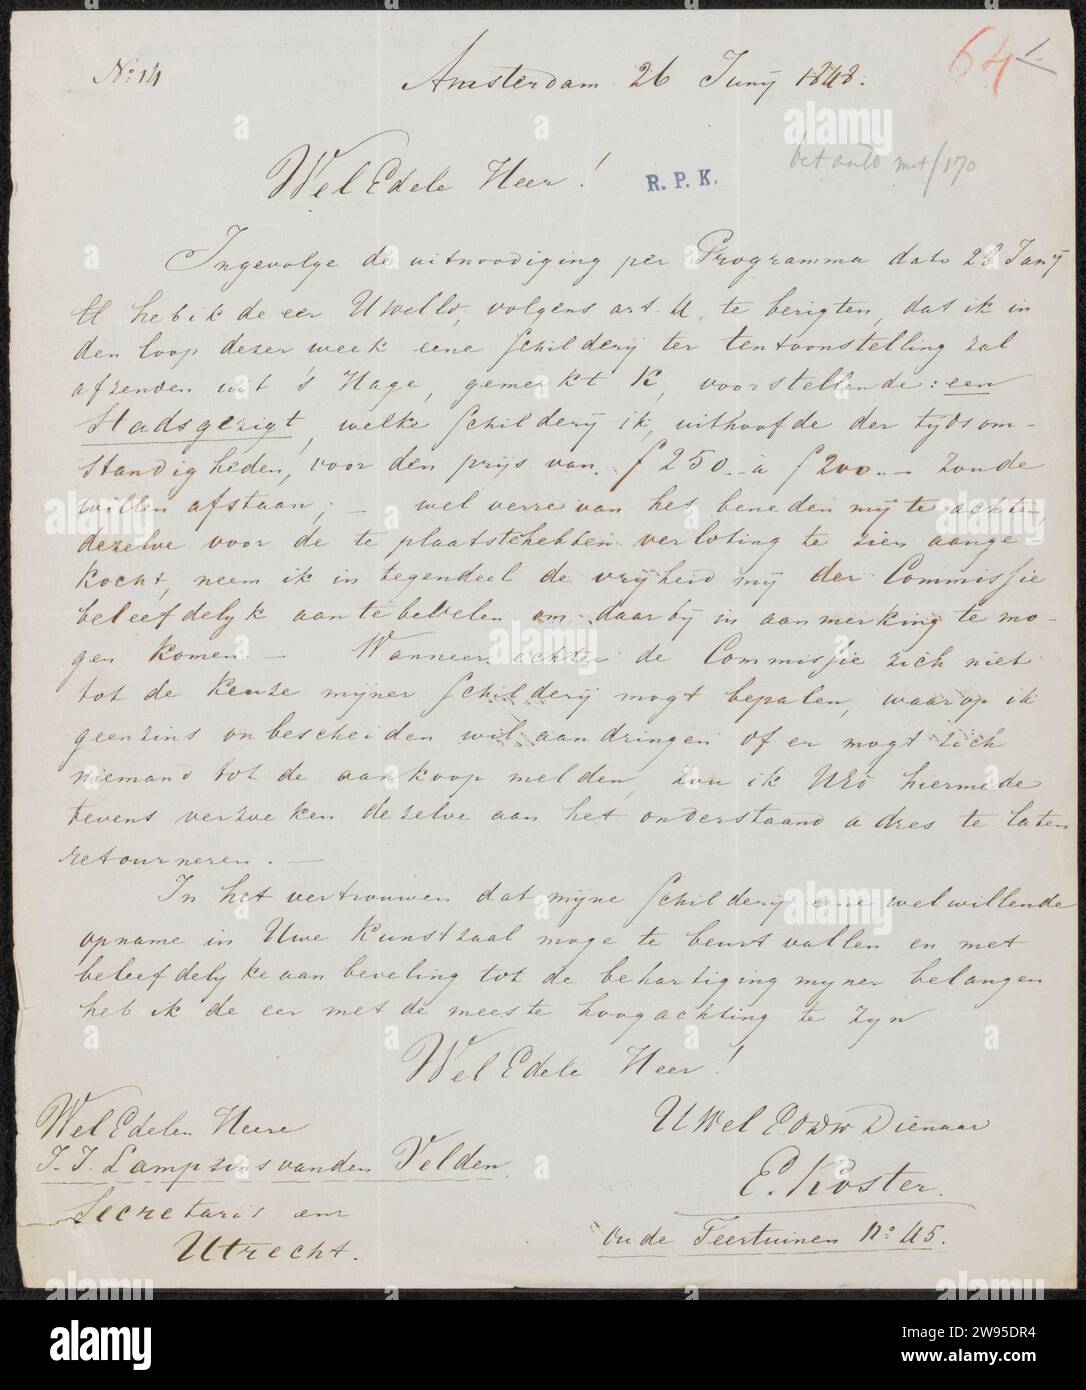 No 14
Amsterdam 26 Junij 1848.
64
R. P. K.
/170
WelEdele Heer!
Ingevolge de uitnoodiging per Programma dato 28 Janij
ll heb ik de eer UwelEd, volgens art. 4, te berigten, dat ik in
den loop dezer week eene schilderij ter tentoonstelling zal
afzenden uit 's Hage, gemerkt K, voorstellende: een
Stadsgezigt, welke schilderij ik, uithoofde der tijdsom-
standigheden, voor den prijs van f 250.- à f 200.- zoude
willen afstaan; - wel verre van het beneden mij te achten,
dezelve voor de te plaatstehebben verloting te zien aange
kocht, neem ik in tegendeel de vrijheid mij der Commissie
beleefdelyk aantebevelen om daarbij in aanmerking te mo-
gen komen. - Wanneer echter de Commissie zich niet
tot de keuze mijner schilderij mogt bepalen, waarop ik
geenzins onbescheiden wil aandringen of er mogt zich
niemand tot de aankoop melden, zou ik UEd hiermede
tevens verzoeken dezelve aan het onderstaand adres te laten
retourneren. -
In het vertrouwen dat mijne schilderij eene welwillende
opname in Uwe kunstzaal moge te beurt vallen en met
beleefdelyke aanbeveling tot de behartiging mijner belangen
heb ik de eer met de meeste hoogachting te zyn
WelEdele Heer!
UWelEd Dienaar
E. Koster.
oude Teertuinen No 45.
WelEdelen Heere
J. J. Lampsins van den Velden,
Secretaris enz
Utrecht.
alamy
alamy
Image ID: 2W95DR4
www.alamy.com